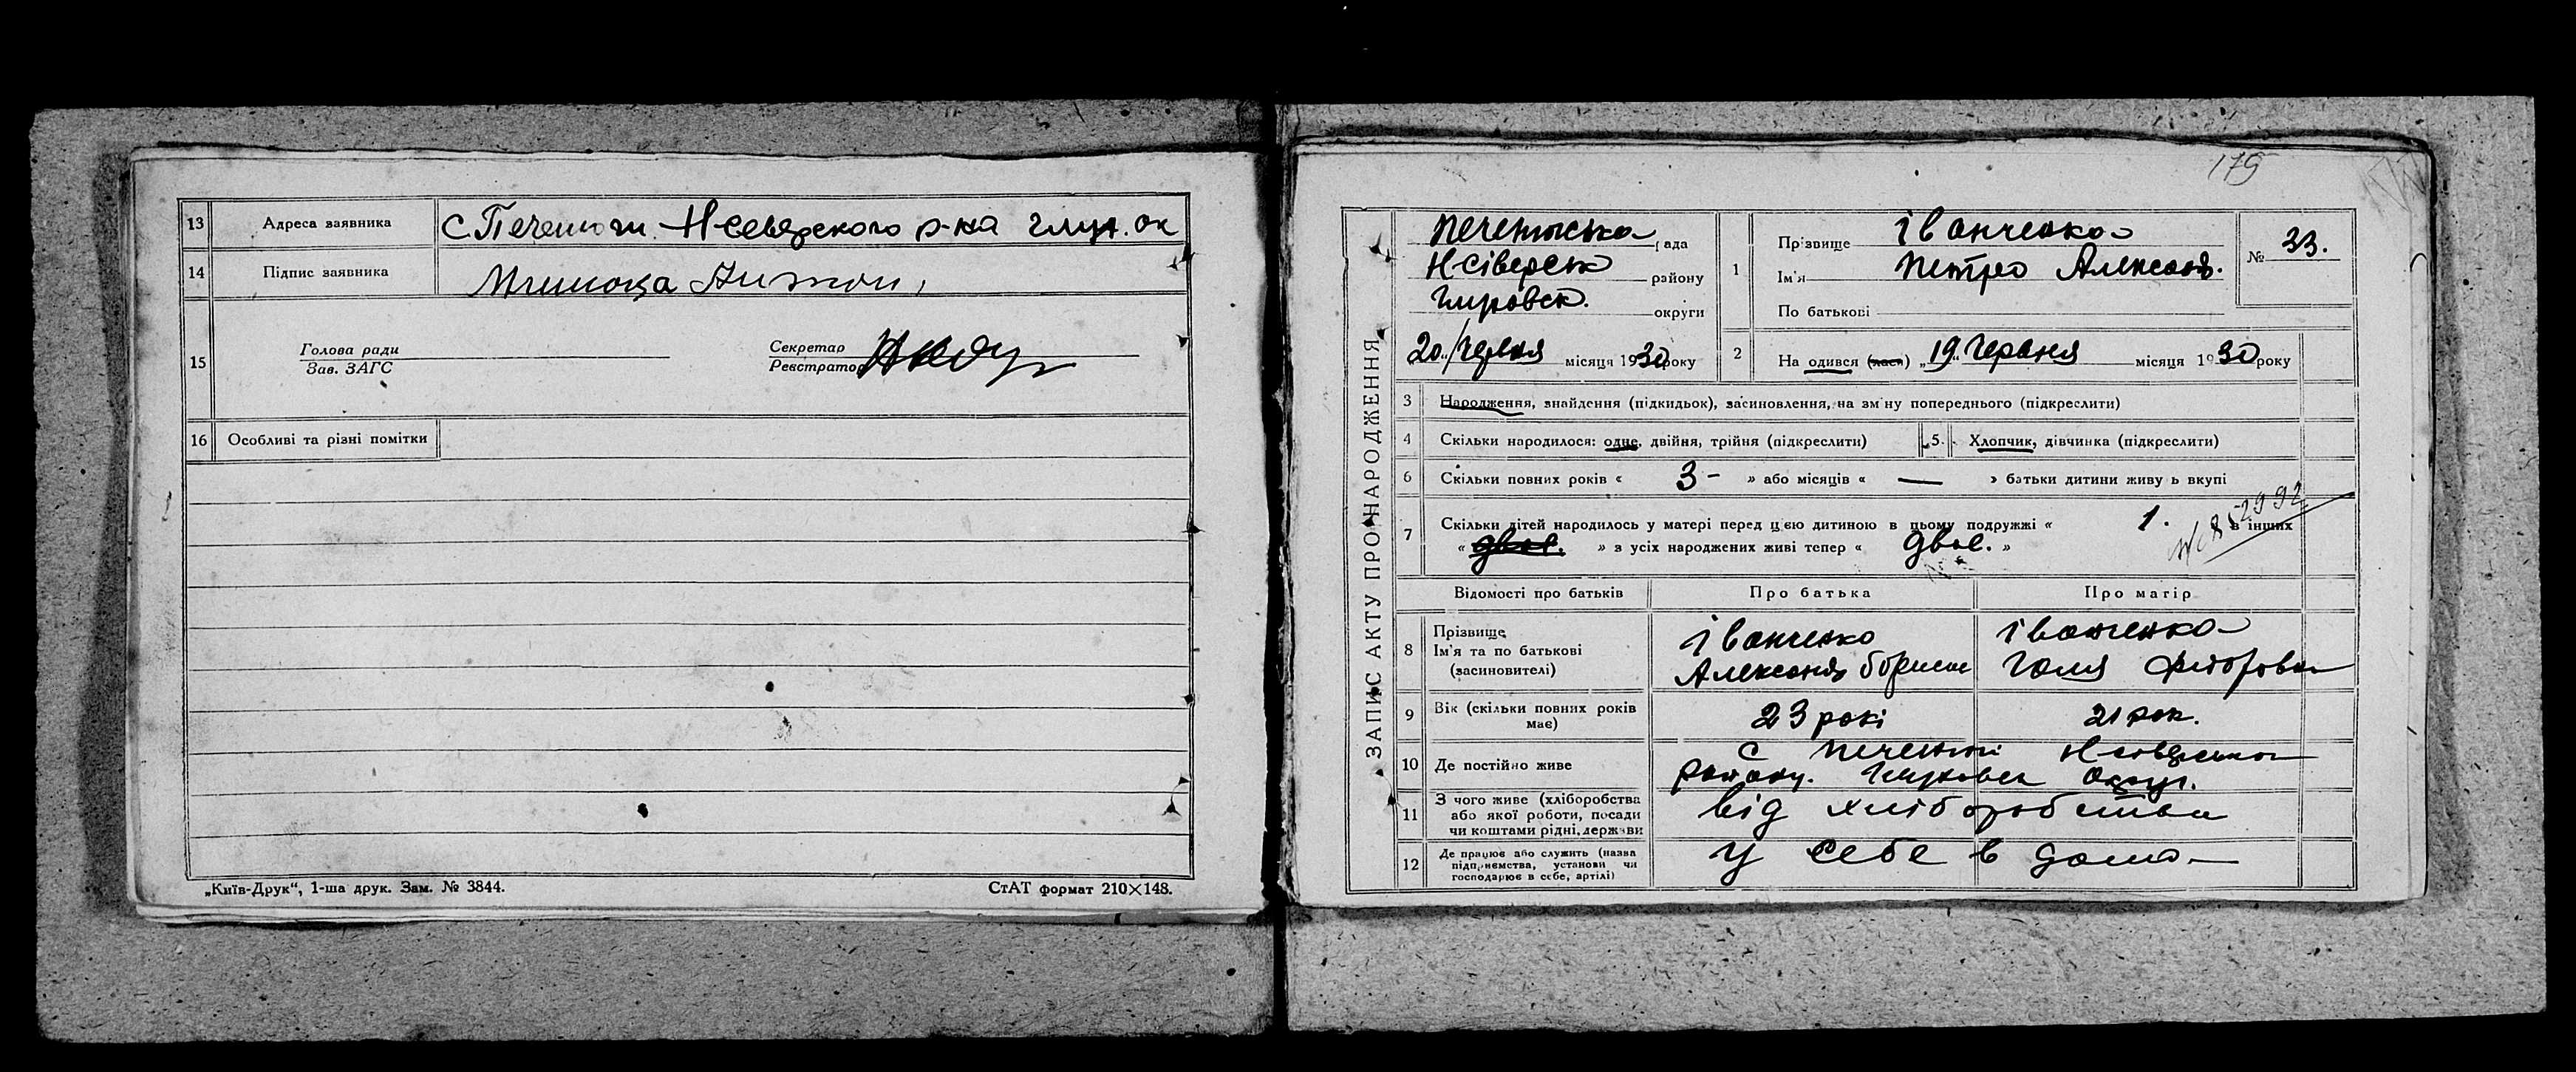 13 Адреса заявника с. Печенюги Н Северского р-на глух. ок
14 Підпис заявника
15 Голова ради
Зав. ЗАГС
Секретар
Реєстратор
16 Особливі та різні помітки
„Київ-Друк“, 1-ша друк. Зам. № 3844.
СтАТ формат 210×148.
179
ЗАПИС АКТУ ПРО НАРОДЖЕННЯ
Печенюська рада
Н Сіверськ району
округи
20 / Червня місяця 1930 року
1 Прізвище Іванченко
Ім'я Петро Александ.
По батькові
№ 33.
2 На одився (лася) „19“ Червня місяця 1930 року
3 Народження, знайдення (підкидьок), засиновлення, на зміну попереднього (підкреслити)
4 Скільки народилося: одне, двійня, трійня (підкреслити)
5 Хлопчик, дівчинка (підкреслити)
6 Скільки повних років « 3 - » або місяців « — » батьки дитини живу ь вкупі
7 Скільки дітей народилось у матері перед цією дитиною в цьому подружжі « 1. в інших
« двое. » з усіх народжених живі тепер « двое. »
Відомості про батьків Про батька Про матір
8 Прізвище
Ім'я та по батькові
(засиновителі)
Іванченко
Александр Борисов
Іванченко
Галя Федоровна
9 Вік (скільки повних років
має)
23 рокі
21 рок.
10 Де постійно живе
с Печенюги Н Сіверського
району. Глуховск округ.
11 З чого живе (хліборобства
або якої роботи, посади
чи коштами рідні, держави
від хліборобства
12 Де працює або служить (назва
підприємства, установи чи
господарює в себе, артілі)
у себе в дома